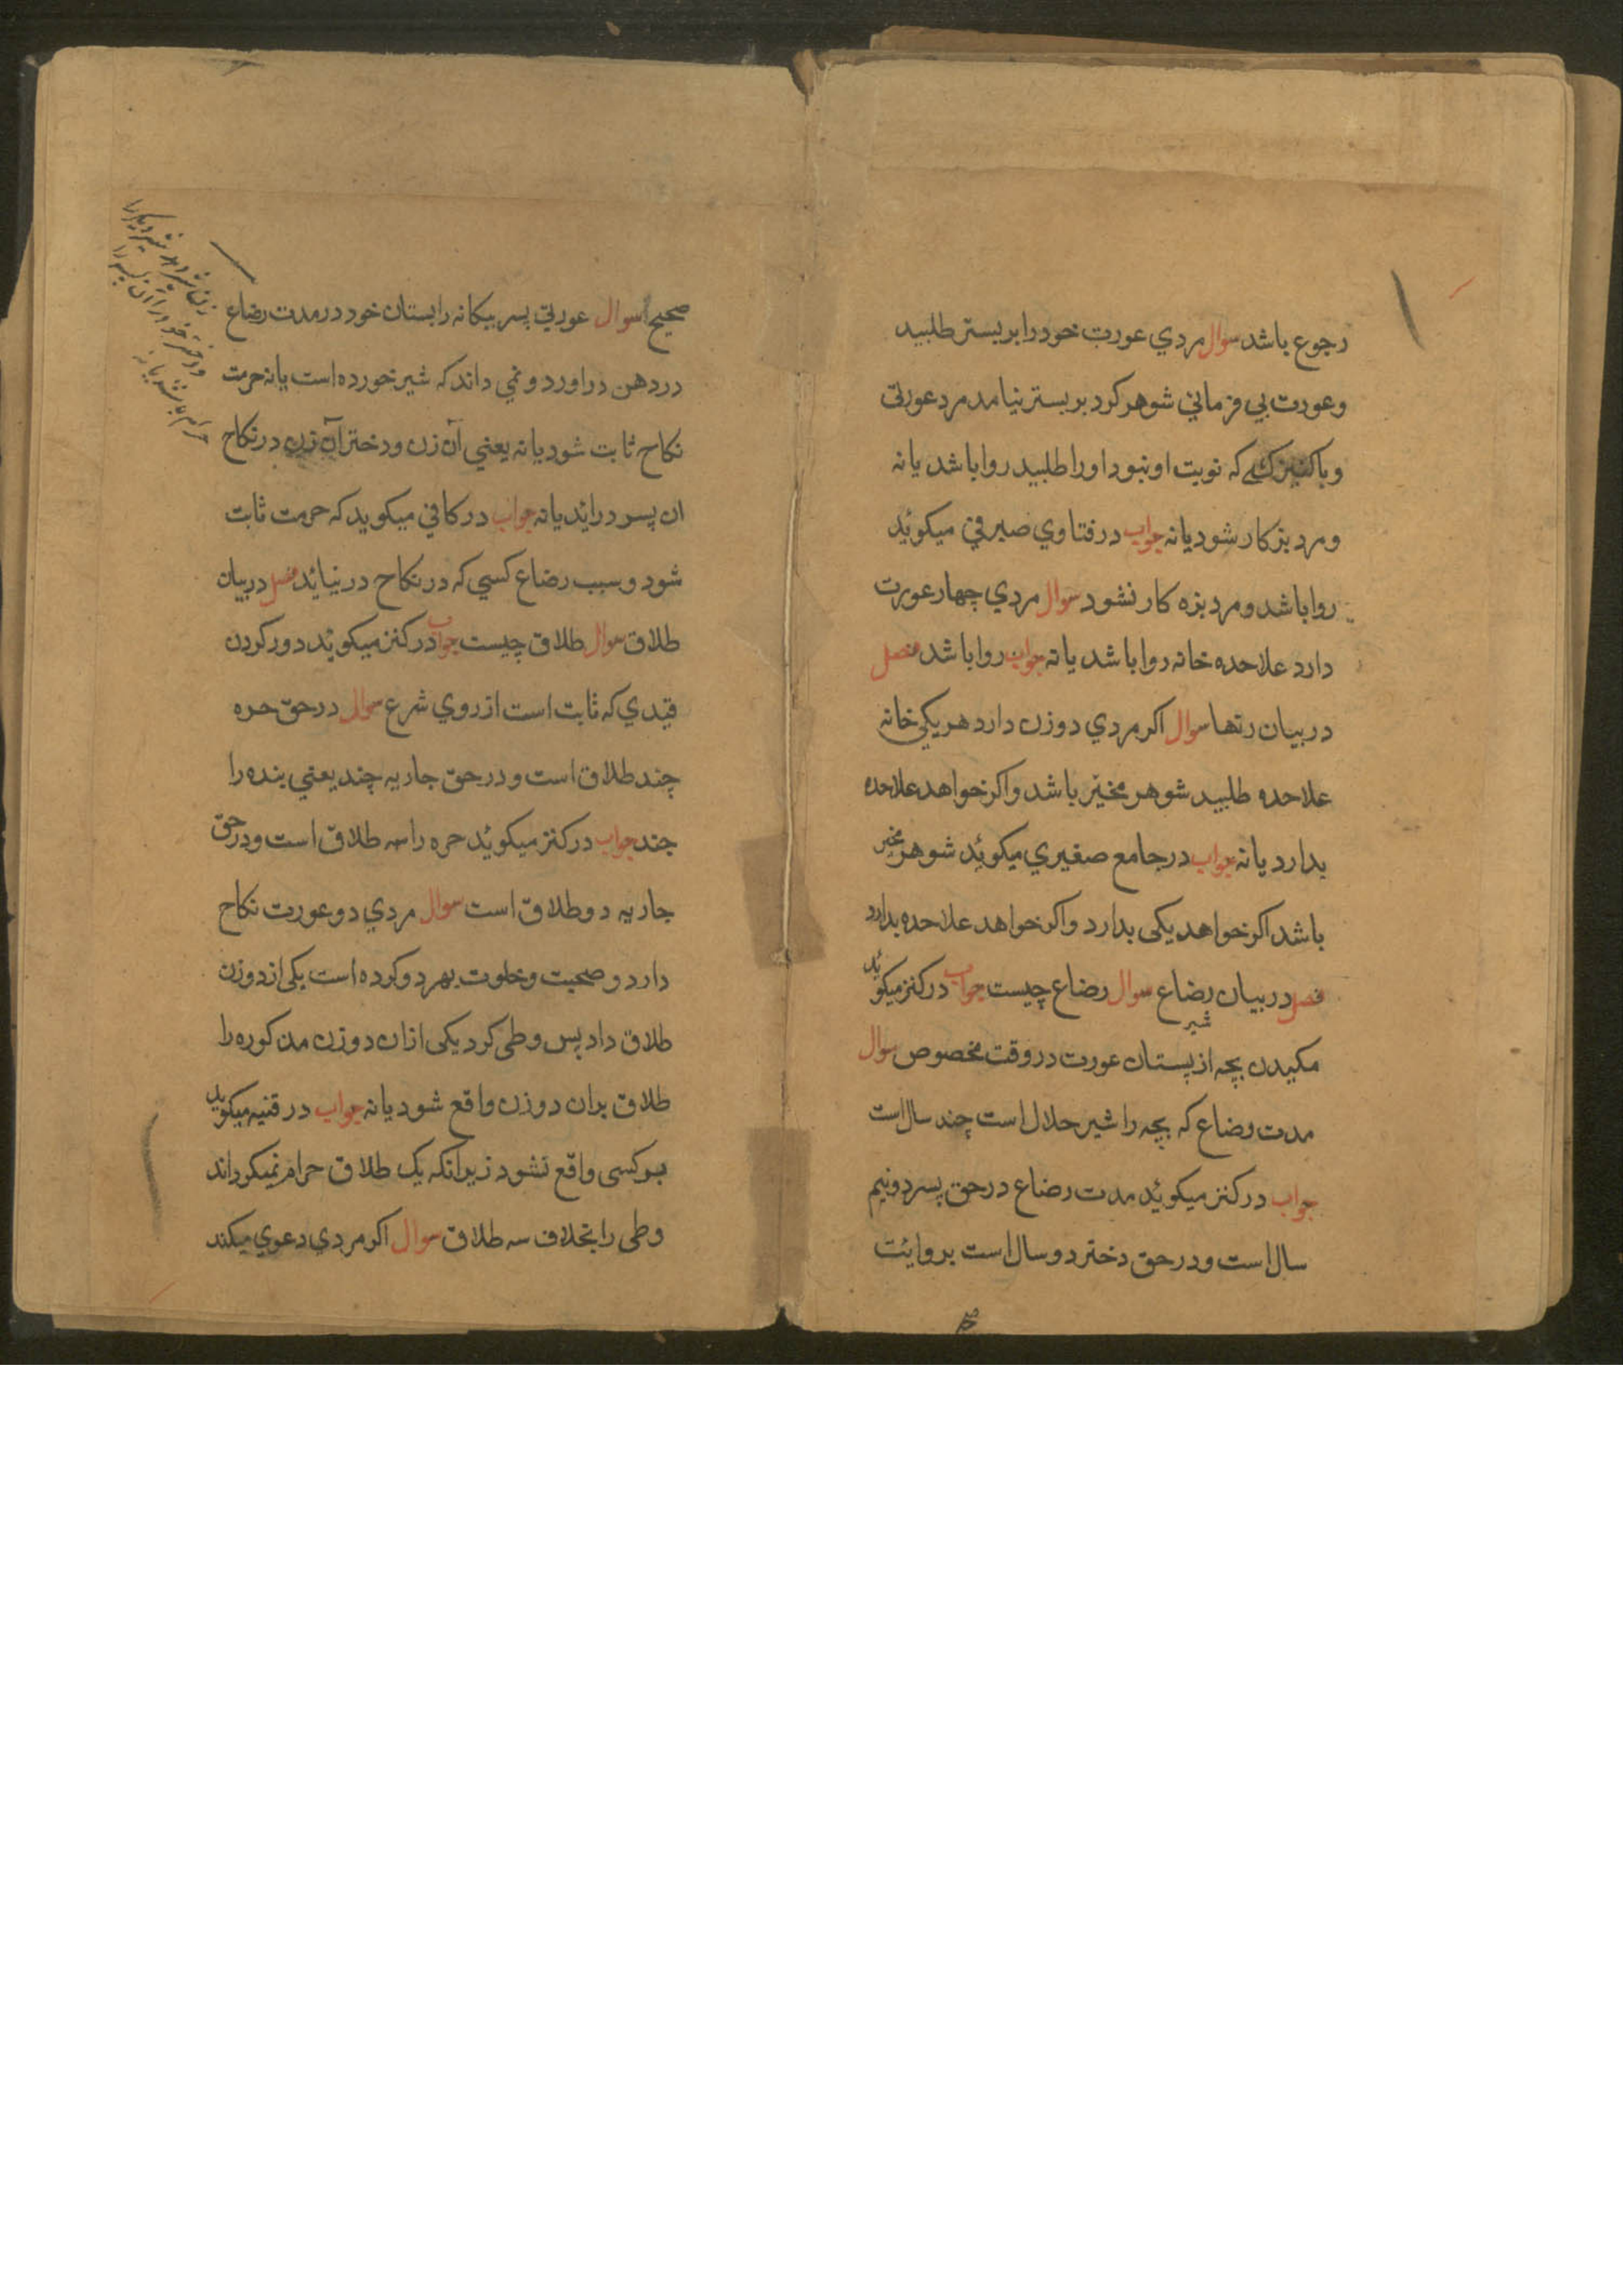 رجوع باشد سوال مردي عورت خود را بر بستر طلبيد
و عورت بي فرماني شوهر كرد بر بستر نيامد مرد عورتي
و با كنيزكـے كه نوبت او نبود او را طلبيد روا باشد يا نه
و مرد بزكار شود يا نه جواب در فتاوي صيرفي ميكوئيد
روا باشد و مرد بزه كار نشود سوال مردي چهار عورت
دارد علاحده خانه روا باشد يا نه جواب روا باشد فصل
در بيان رتها سوال اكر مردي دو زن دارد هر يكي خانه
علاحده طلبيد شوهر مخير باشد و اكر خواهد علاحده
بدارد يا نه جواب در جامع صغيري ميكوئد شوهر مخير
باشد اكر خواهد يكى بدارد و اكر خواهد علاحده بدارد
فصل در بيان رضاع سوال رضاع چيست جواب در كنز ميكوئد
مكيدن بچه از پستان عورت در وقت مخصوص سوال
شير
مدت رضاع كه بچه را شير حلال است چند سال است
جواب در كنز ميكوئد مدت رضاع در حق پسر دونيم
سال است و در حق دختر دو سال است بروائت
صحيح سوال عورتي پسر بيكانه را بستان خود در مدت رضاع
در دهن در اورد و نمي داند كه شير خورده است يا نه حرمت
نكاح ثابت شود يا نه يعني آن زن و دختر آن زن در نكاح
ان پسر در ايد يا نه جواب در كافي ميكويد كه حرمت ثابت
شود و سبب رضاع كسي كه در نكاح در نيائد فصل در بيان
طلاق سوال طلاق چيست جواب در كنز ميكوئد دور كردن
قيدي كه ثابت است از روي شرع سوال در حق حره
چند طلاق است و در حق جاريه چند يعني بنده را
چند جواب در كنز ميكوئد حره را سه طلاق است و در حق
جاريه دو طلاق است سوال مردي دو عورت نكاح
دارد و صحبت و خلوت بهر دو كرده است يكى از دو زن
طلاق داد پس وطى كرد يكى ازان دو زن مذكوره را
طلاق بران دو زن واقع شود يا نه جواب در قنيه ميكويد
بر كسى واقع نشود زيرانكه يك طلاق حرام نميكرداند
وطى را بخلاف سه طلاق سوال اكر مردي دعوي ميكند